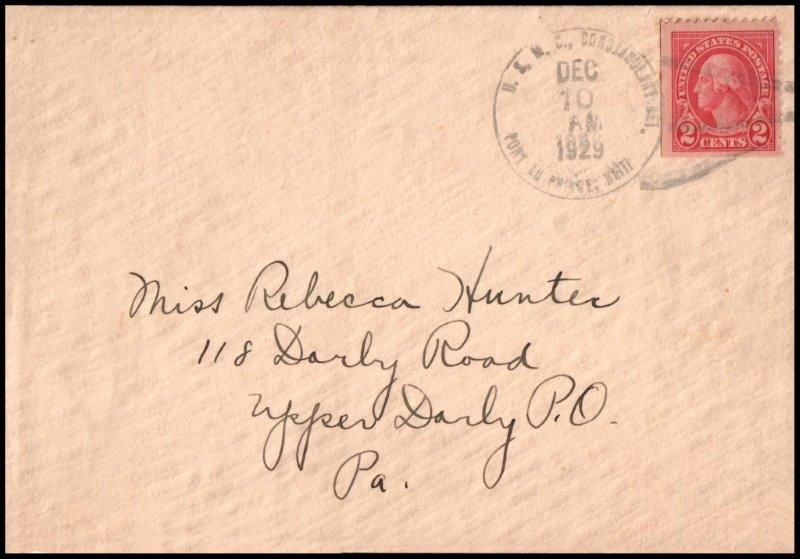 U. S. M. C., CONSTABULARY DET.
DEC
10
AM
1929
PORT AU PRINCE, HAITI
UNITED STATES POSTAGE
2 CENTS 2
Miss Rebecca Hunter
118 Darby Road
Upper Darby P.O.
Pa.